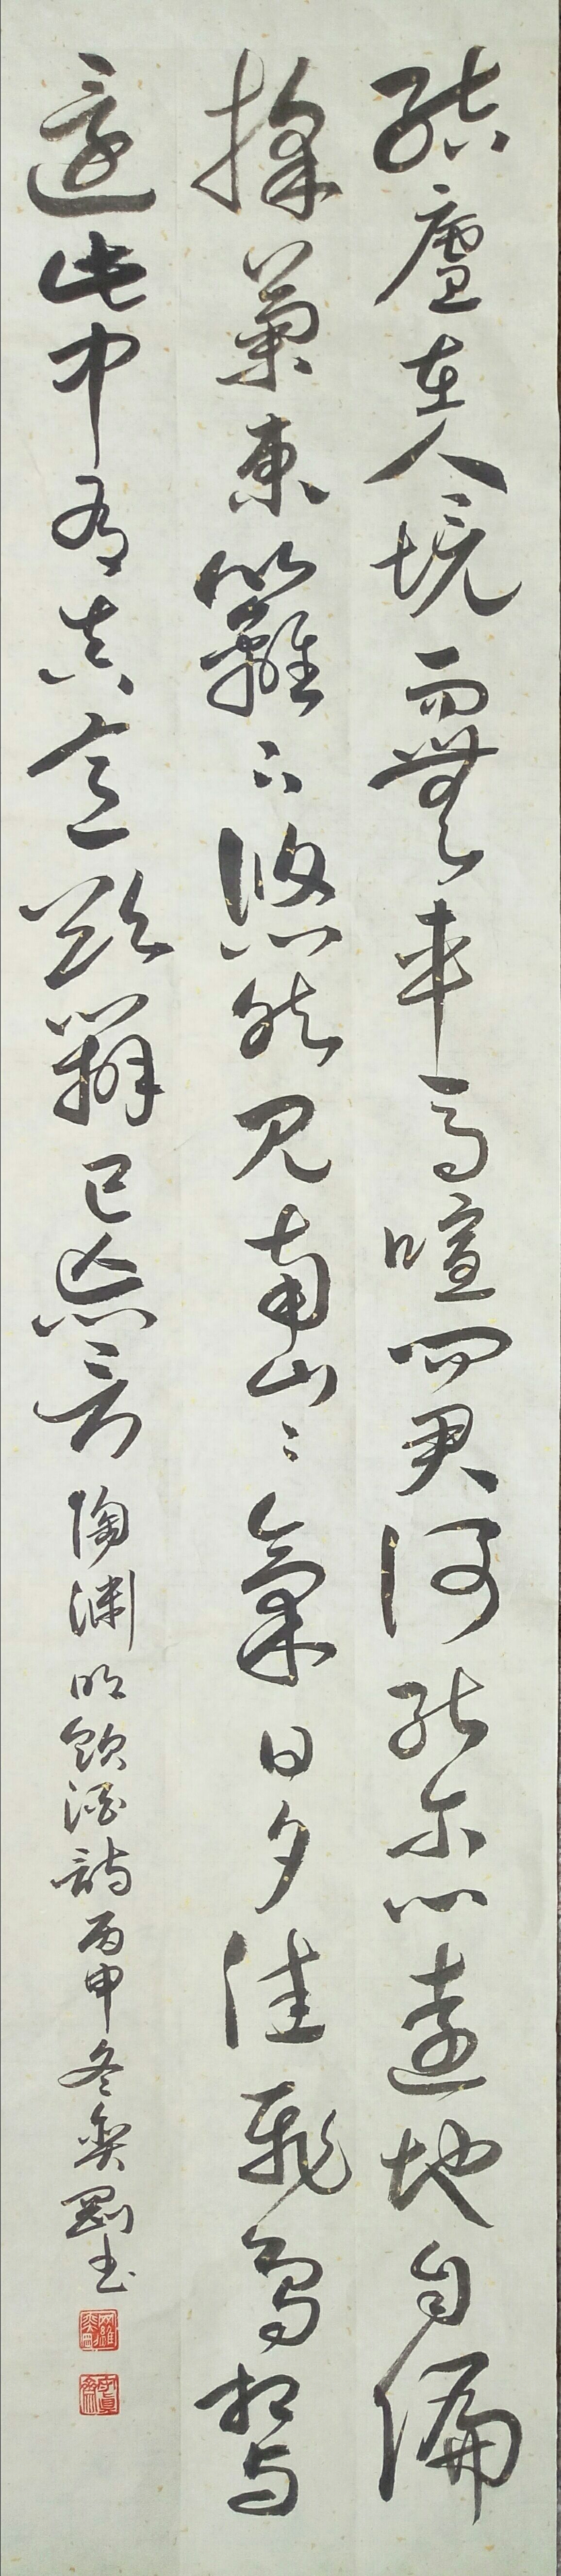 結廬在人境而無車馬喧問君何能尔心遠地自偏
採菊東籬下悠然見南山〻氣日夕佳飛鳥相與
還此中有真意欲辯已忘言陶淵明飲酒詩丙申冬奕剛書